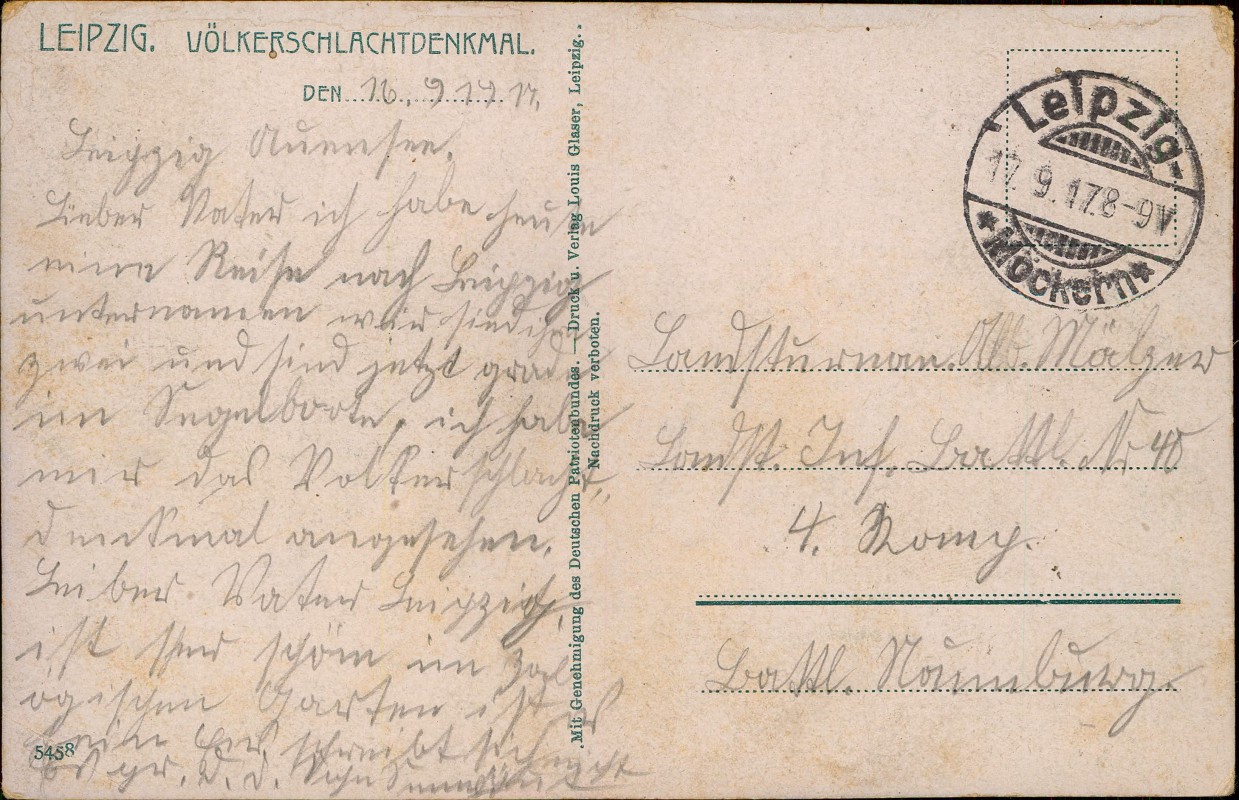 LEIPZIG. VÖLKERSCHLACHTDENKMAL.
DEN 16. 9 1917.
Leipzig Auensee.
Lieber Vater ich habe heute
eine Reise nach Leipzig
unternamen wir sind ihr
zwei und sind jetzt grade
im Segelboote, ich habe
mir das Volkerschlacht„
denkmal angesehen.
Leiber Vater Leipzig,
ist sher schön im Zol
ogischen Garten ist es
schreibt sich nicht
Es gr. D. d. Sohn
5458
„Mit Genehmigung des Deutschen Patriotenbundes. — Druck u. Verlag Louis Glaser, Leipzig.“
Nachdruck verboten.
Leipzig-
17. 9. 17. 8-9V
* Möckern *
Landsturman. Alb. Mälzer
Landst. Inf. Battl. Nr 40
4. Komp.
Battl. Naumburg.